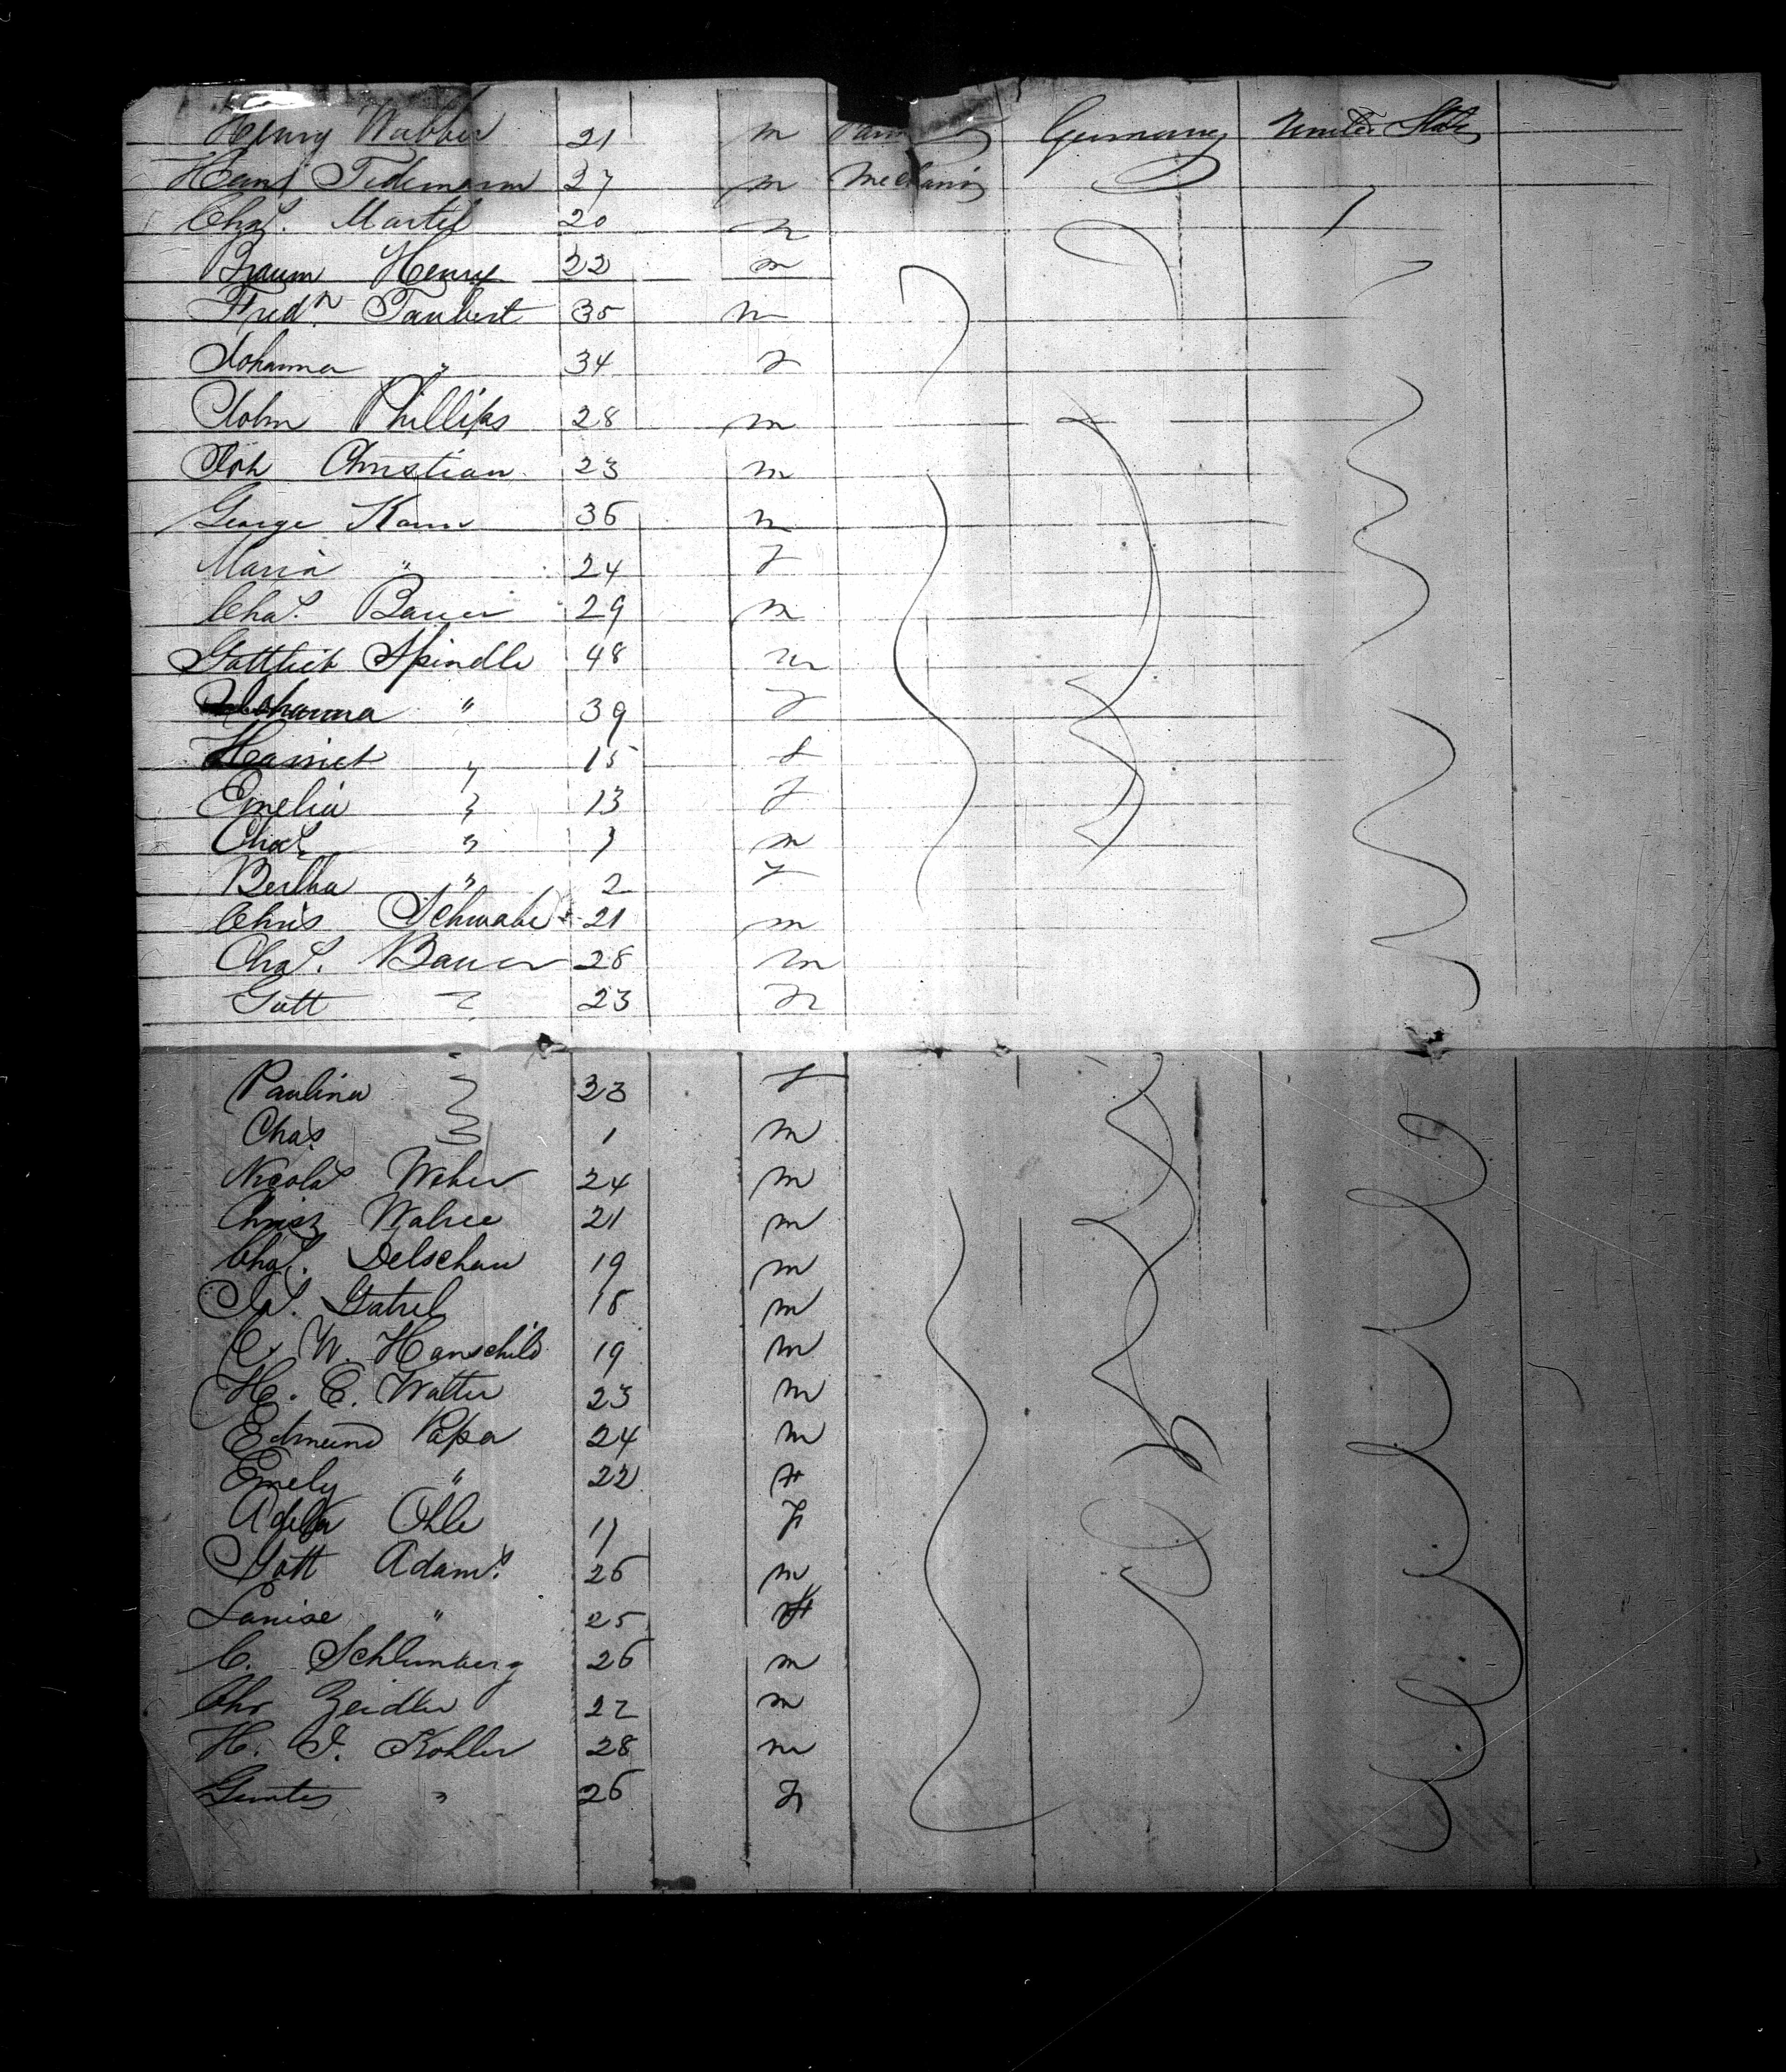 Henry Webber 21 m Germany United States
Hans Tidemann 27 m Mechanic
Chas. Martil 20 m
Braum Henry 22 m
Fredk Taubert 35 m
Johanna " 34 f
John Phillips 28 m
Joh Christian 23 m
George Kann 36 m
Maria " 24 f
Chas. Bauer 29 m
Gottlieb Spindle 48 m
Johanna " 39 f
Harriet " 15 f
Emelia " 13 f
Chas. " 7 m
Bertha " 2 f
Chris Schwabe 21 m
Chas. Bauer 28 m
Gott " 23 m
Paulina " 23 f
Chas " 1 m
Nicolas Weber 24 m
Christ Walree 21 m
Chas. Delschau 19 m
Js. Gatrel 18 m
C. W. Hanschild 19 m
H. C. Walter 23 m
Edmund Papa 24 m
Emely " 22 f
Adela Ohle 17 f
Gott Adams 26 m
Louise " 25 f
C. Schlumberg 26 m
Chr Zeidler 22 m
H. J. Kohler 28 m
" 26 f